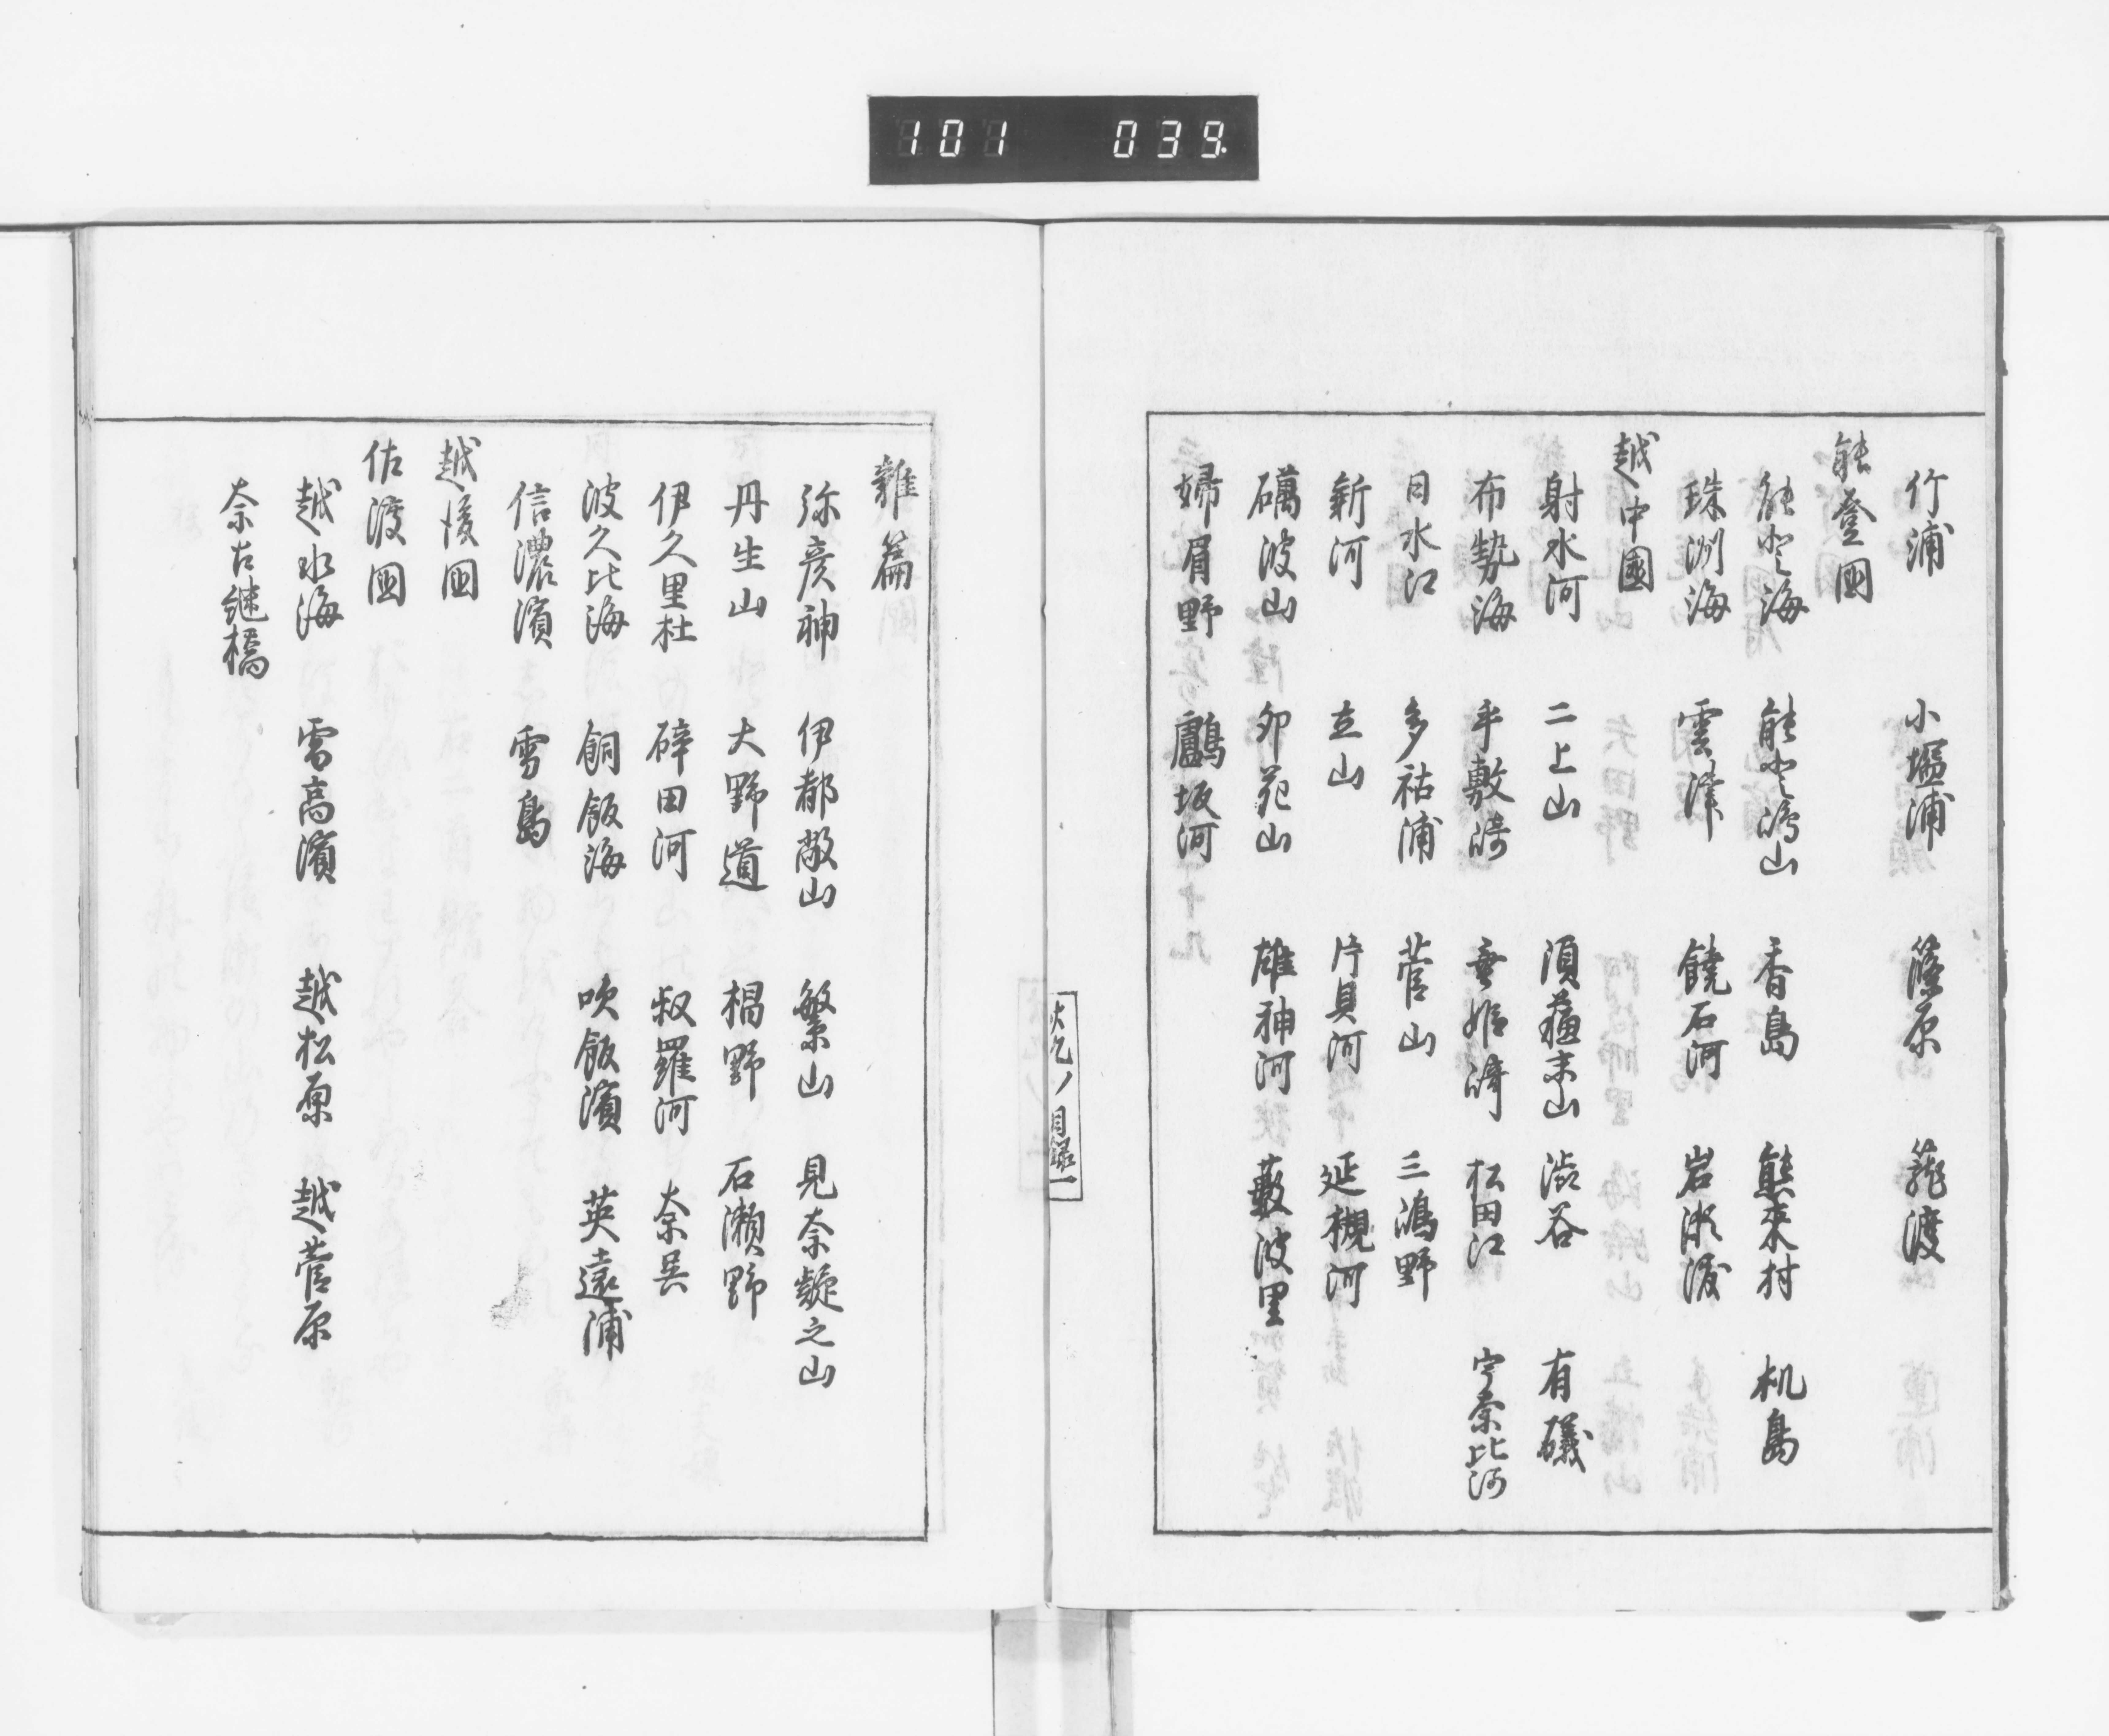 101 039
竹浦 小塩浦 篠原 蓙渡
能登國
能登海 能登嶋山 香島 熊来村 机島
珠洲海 雲津 饒石河 岩瀬渡
越中國
射水河 二上山 須蘓末山 渋谷 有礒
布勢海 乎敷﨑 垂姫﨑 松田江 宇奈比河
日水江 多祜浦 菅山 三嶋野
新河 立山 片貝河 延槻河
礪波山 卯花山 雄神河 藪波里
婦屓野 鸕坂河
目録一
雑篇
弥彦神 伊都敵山 繁山 見奈凝之山
丹生山 大野道 楬野 石瀬野
伊久里杜 碎田河 叔羅河 奈呉
波久比海 飼飯海 吹飯濱 英遠浦
信濃濱 雪島
越後國
佐渡國
越水海 雪高濱 越松原 越菅原
奈古継橋